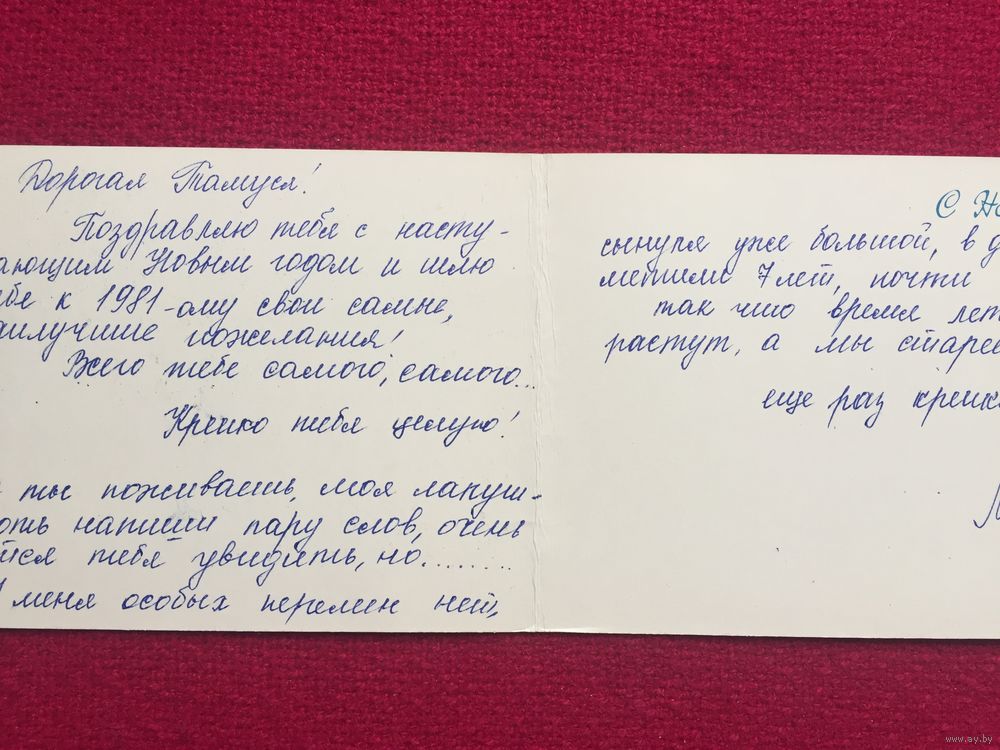 Дорогая Тамуся!
Поздравляю тебя с насту-
ающим Новым годом и шлю
ебе к 1981-ому свои самые,
аилучшие пожелания!
Всего тебе самого, самого...
Крепко тебя целую!
ты поживаешь, моя лапуш-
оть напиши пару слов, очень
тся тебя увидить, но........
меня особых перемен нет,
С Но
сынуля уже большой, в д
метили 7 лет, почти
так что время лет
растут, а мы старее
еще раз крепк
www.ay.by